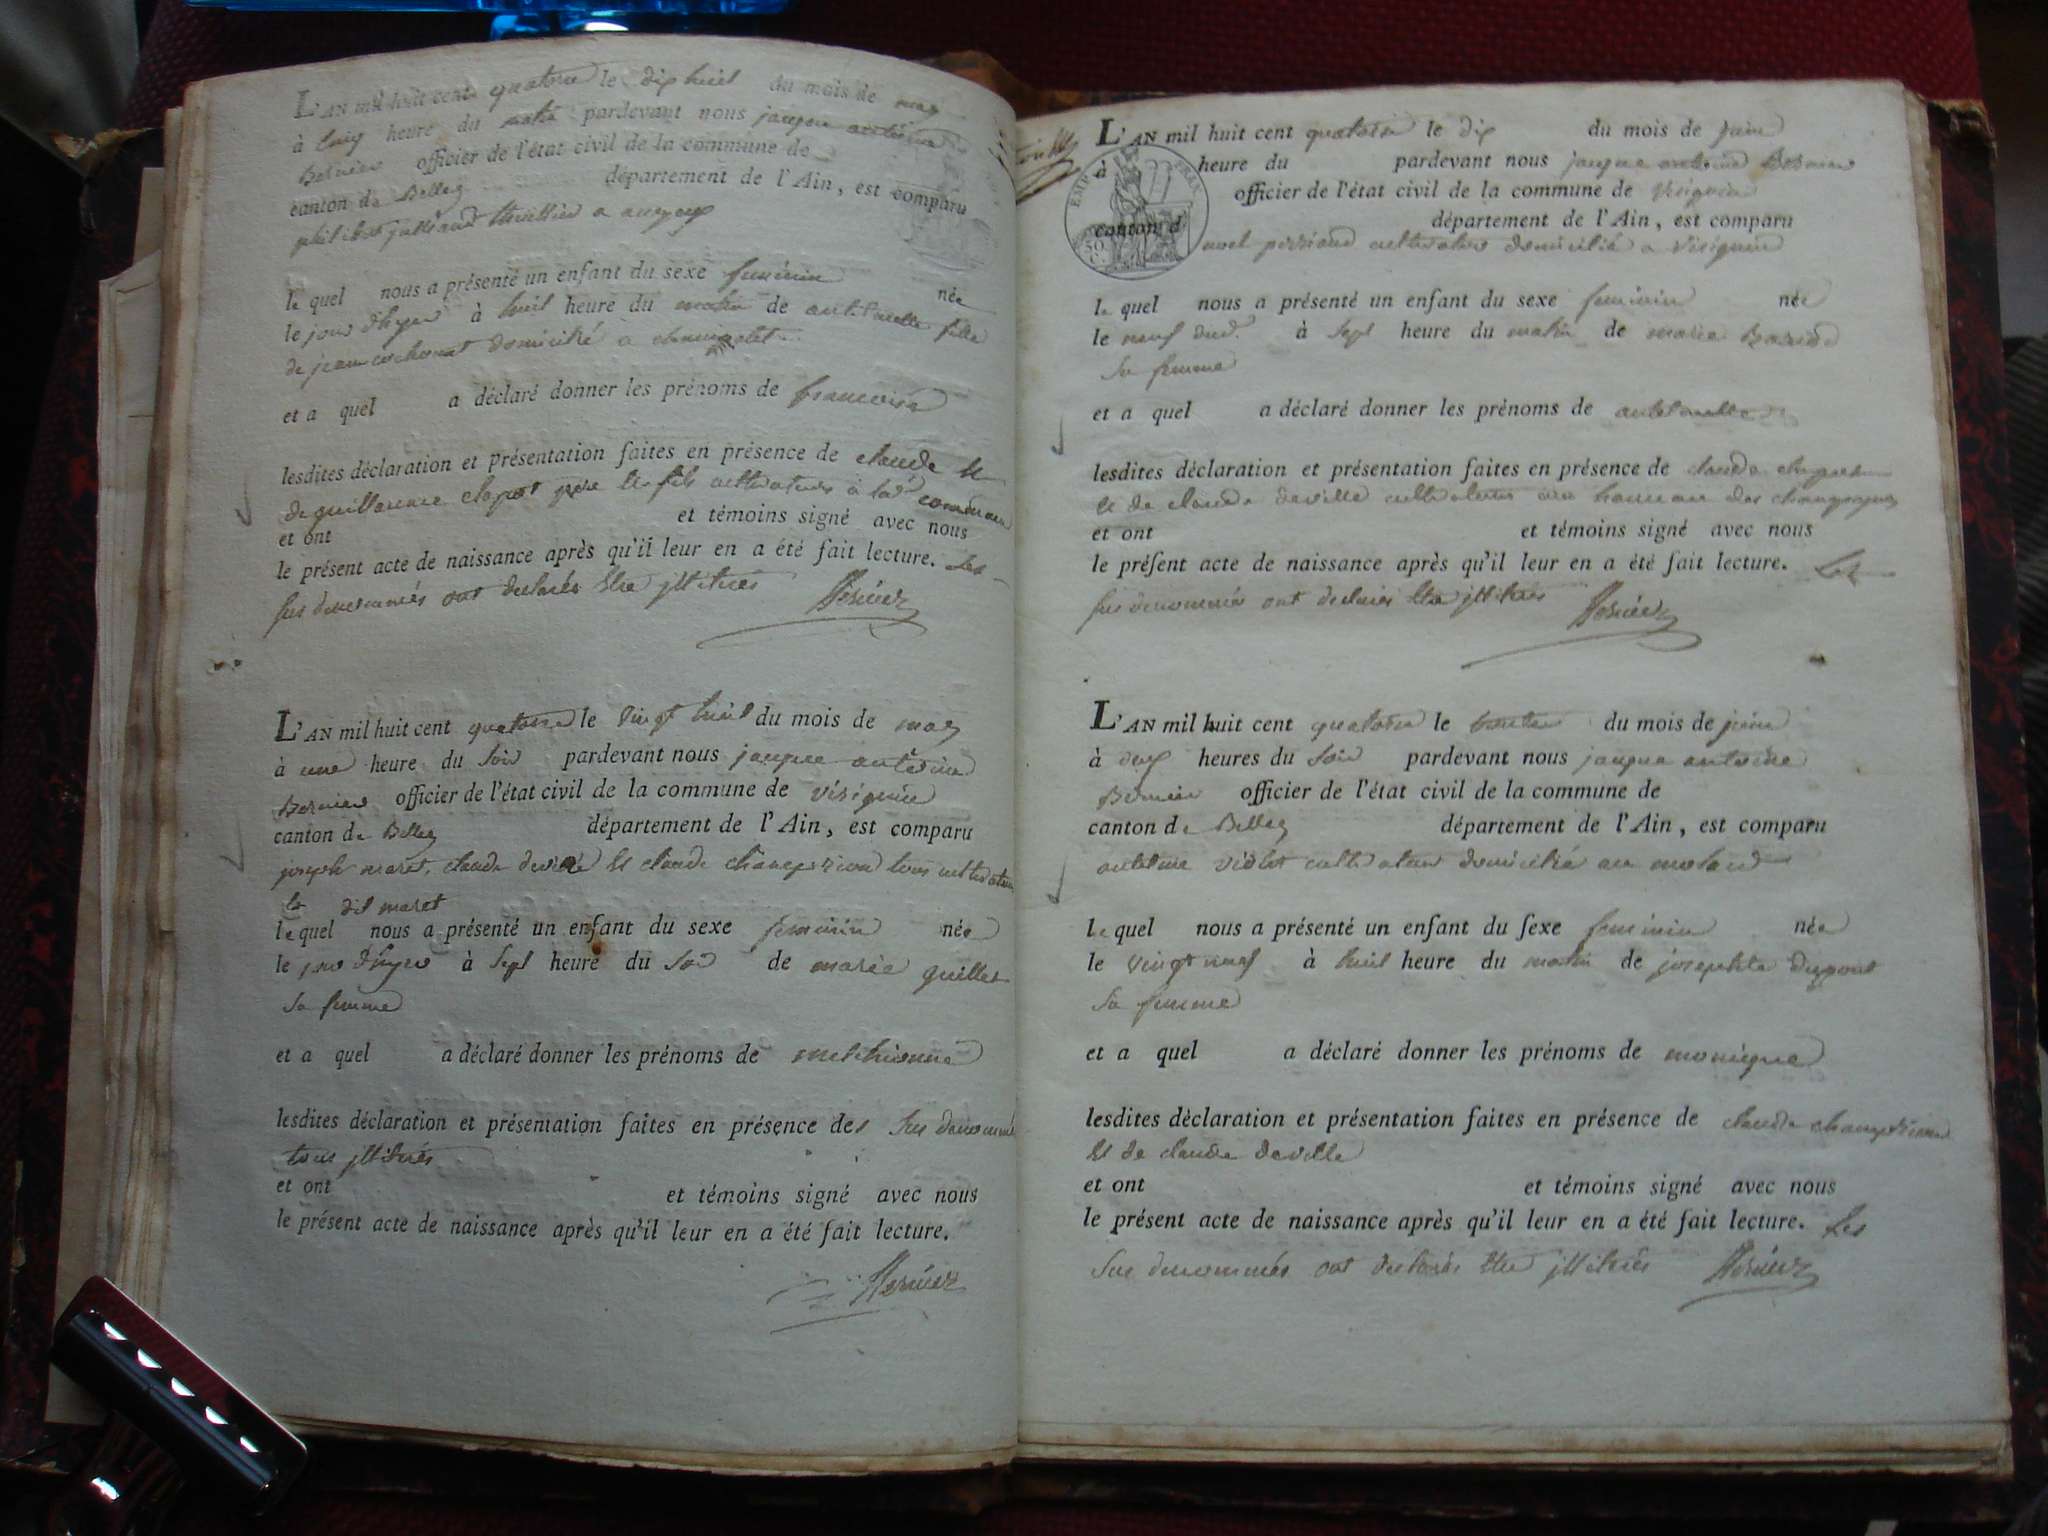 L'AN mil huit cent quatorze le dix huit du mois de may
à cinq heure du matin pardevant nous jacque antoine
Bernier officier de l'état civil de la commune de
canton de Belley département de l'Ain, est comparu
philibert
le quel nous a présenté un enfant du sexe feminin née
le jour d'hyer à huit heure du matin de fille
de jean domicilié a
et a quel a déclaré donner les prénoms de francoise
lesdites déclaration et présentation faites en présence de claude et
de cultivateurs commune
et ont et témoins signé avec nous
le présent acte de naissance après qu'il leur en a été fait lecture. Les
sus denommés ont declarés etre illitirés Bernier
L'AN mil huit cent quatorze le vingt huit du mois de may
à une heure du soir pardevant nous jacque antoine
Bernier officier de l'état civil de la commune de virignin
canton de Belley département de l'Ain, est comparu
joseph maret, claude deville et claude tous cultivateurs
le dit maret
le quel nous a présenté un enfant du sexe feminin née
le jour d'hyer à sept heure du soir de marie guillet
sa femme
et a quel a déclaré donner les prénoms de
lesdites déclaration et présentation faites en présence des sus denommés
tous illitirés
et ont et témoins signé avec nous
le présent acte de naissance après qu'il leur en a été fait lecture.
Bernier
L'AN mil huit cent quatorze le dix du mois de juin
à heure du pardevant nous jacque antoine Bernier
officier de l'état civil de la commune de virignin
canton d département de l'Ain, est comparu
cultivateur domicilié a virignin
EMP
50
C.
le quel nous a présenté un enfant du sexe feminin née
le neuf dud. à sept heure du matin de marie
sa femme
et a quel a déclaré donner les prénoms de
lesdites déclaration et présentation faites en présence de claude
et de claude deville cultivateurs au hameau des
et ont et témoins signé avec nous
le présent acte de naissance après qu'il leur en a été fait lecture. Les
sus denommés ont declarés etre illitirés Bernier
L'AN mil huit cent quatorze le trente du mois de juin
à deux heures du soir pardevant nous jacque antoine
Bernier officier de l'état civil de la commune de
canton de Belley département de l'Ain, est comparu
antelme cultivateur domicilié au
le quel nous a présenté un enfant du sexe feminin née
le vingt neuf à huit heure du matin de josephte dupont
sa femme
et a quel a déclaré donner les prénoms de monique
lesdites déclaration et présentation faites en présence de claude
et de claude deville
et ont et témoins signé avec nous
le présent acte de naissance après qu'il leur en a été fait lecture. Les
sus denommés ont declarés etre illitirés Bernier